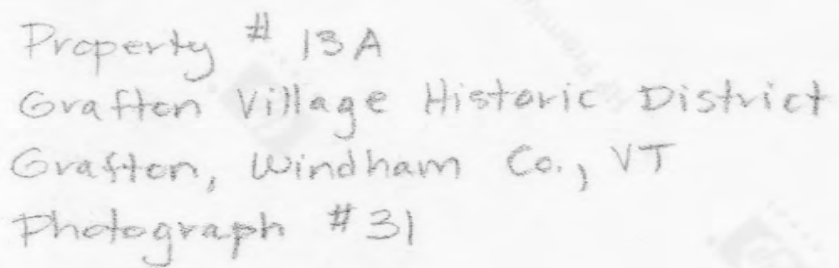 Property # 13A
Grafton Village Historic District
Grafton, Windham Co., VT
Photograph #31